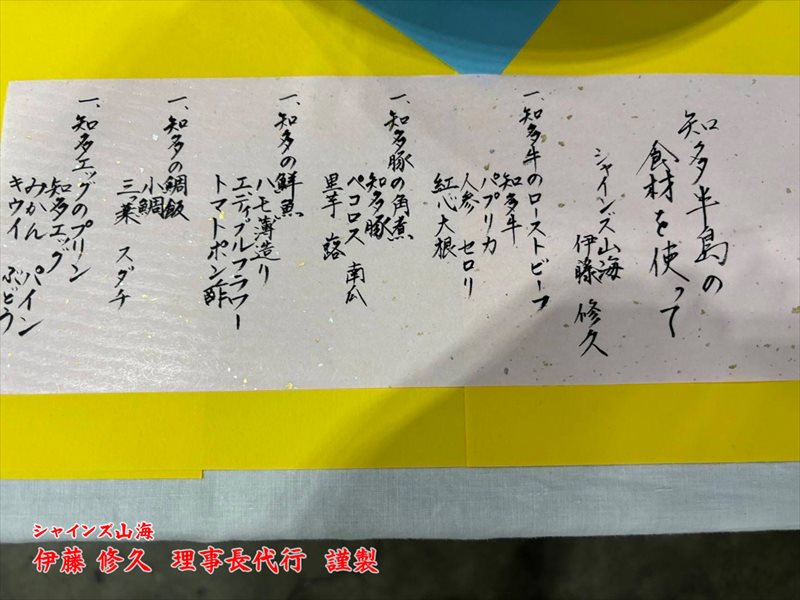 知多半島の
食材を使って
シャインズ山海
伊藤 修久
一、知多牛のローストビーフ
知多牛
パプリカ
人参 セロリ
紅心大根
一、知多豚の角煮
知多豚
ペコロス 南瓜
里芋 蕗
一、知多の鮮魚
ハモ薄造り
エディブルフラワー
トマトポン酢
一、知多の鯛飯
小鯛
三つ葉 スダチ
一、知多エッグのプリン
知多エッグ
みかん パイン
キウイ ぶどう
シャインズ山海
伊藤 修久 理事長代行 謹製